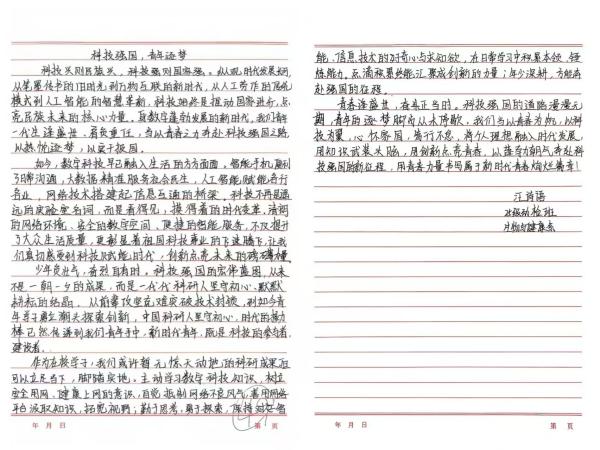 科技强国，青年逐梦
科技兴则民族兴，科技强则国家强。从从观时代发展洞，
从笔墨传书的旧时光到万物互联的新时代，从人工劳作的传统
模式到人工智能的智慧革新，科技始终是推动国家进步，点
亮民族未来的核心力量。在数字蓬勃发展的新时代，我们青年
一代生逢盛世，肩负重任，当以青春之力奔赴科技强国之路，
以热忱逐梦，以实干报国。
如今，数字科技早已融入生活的方方面面。智能手机
日常沟通，大数据精准服务社会民生，人工智能赋能各行
各业，网络技术搭建起信息互通的桥梁。科技不再是遥
远的实验室名词，而是看得见，摸得着的时代变革。清朗
的网络环境、安全的数字空间、便捷的智能服务，不仅提升
了大众生活质量，更彰显着祖国科技事业的飞速腾飞，让我
们真切感受到科技赋能时代，创新点亮未来的磅礴力量
少年负壮气，奋烈自有时。科技强国的宏伟蓝图，从来
不是一朝一夕的成果，而是一代代科研人坚守初心、默默
耕耘的结晶。从前辈攻坚克难突破技术封锁，到如今青
年学子勇立潮头探索创新，中国科研人坚守初心，时代的接力
棒已然传递到我们青年手中，新时代青年，既是科技的参与者，
建设者。
作为在校学子，我们或许暂无惊天动地的科研成果，但
可以立足当下，脚踏实地。主动学习数字科技知识，树立
安全用网、健康上网的意识，自觉抵制网络不良风气，善用网络
平台汲取知识，拓宽视野；勤于思考，勇于探索，保持对智
年 月 日 第 页
能、信息技术的好奇心与求知欲，在日常学习中积累本领、锤
炼能力。点滴积累终能汇聚成创新的力量；年少深耕，方能奔
赴强国的征程。
青春逢盛世，奋斗正当时。科技强国的道路漫漫无
期，青年的逐梦脚步从未停歇，我们当以青春为为，以科
技为翼，心怀家国，笃行不怠，将个人理想融入时代发展，
用知识武装头脑，用创新点亮青春，以蓬勃朝气奔赴科
技强国的新征程，用青春力量书写属于新时代青春灿烂篇章！
江诗语
生物与健康系
年 月 日 第 页